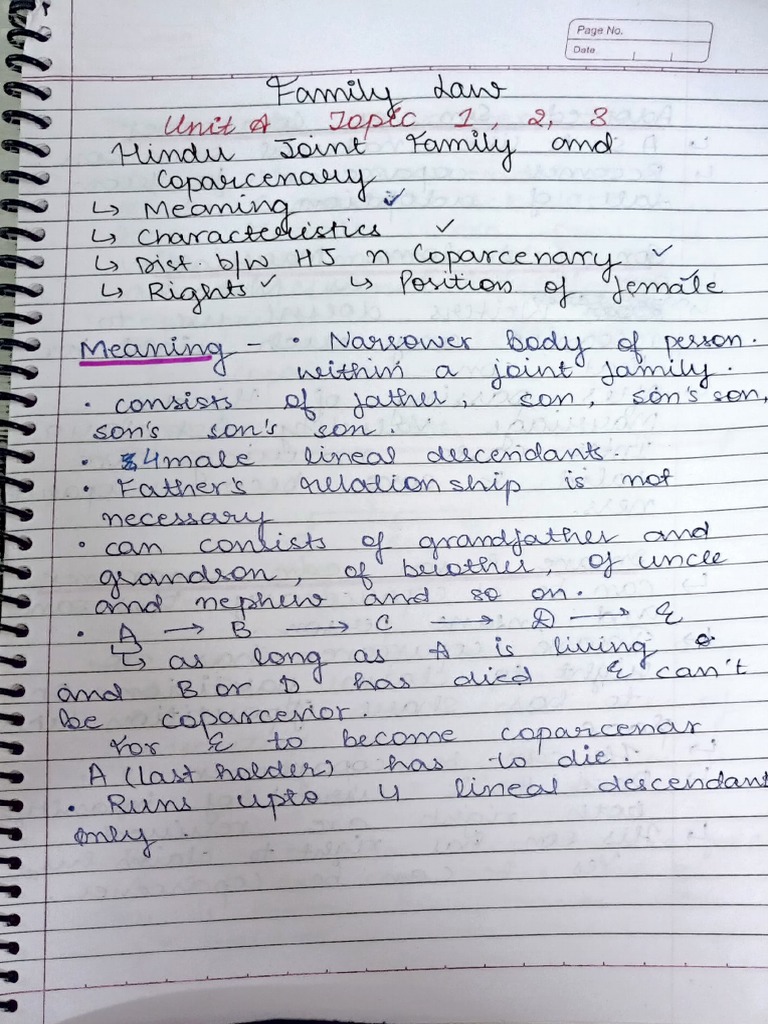 Page No.
Date
Family Law
Unit A Topic 1, 2, 3
Hindu Joint Family and
Coparcenary
↳ Meaning ✓
↳ Characteristics ✓
↳ Dist. b/w HJ n Coparcenary ✓
↳ Rights ✓ ↳ Position of female
Meaning - • Narrower body of person.
within a joint family.
• consists of father, son, son's son,
son's son's son.
• 4 male lineal descendants.
• Father's relationship is not
necessary
• can consists of grandfather and
grandson, of brother, of uncle
and nephew and so on.
• A → B → C → D → E
↳ as long as A is living
and B or D has died E can't
be coparcenor.
For E to become coparcenar
A (last holder) has to die.
• Runs upto 4 lineal descendant
only.